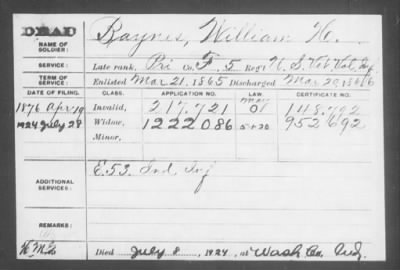 DEAD
NAME OF SOLDIER: Raynes, William H.
SERVICE: Late rank, Pri Co. F, 5 Reg't U. S. Vet Vol. Inf
TERM OF SERVICE: Enlisted Mar 21, 1865 Discharged Mar 20, 1866
DATE OF FILING. CLASS. APPLICATION NO. LAW. CERTIFICATE NO.
1876 Apr 19 Invalid, 217.721 May 07 148.792
1924 July 28 Widow, 1222086 5+20 952692
Minor,
ADDITIONAL SERVICES: E. 53. Ind Inf
REMARKS:
Died July 8, 1924, at Wash Co. Ind.